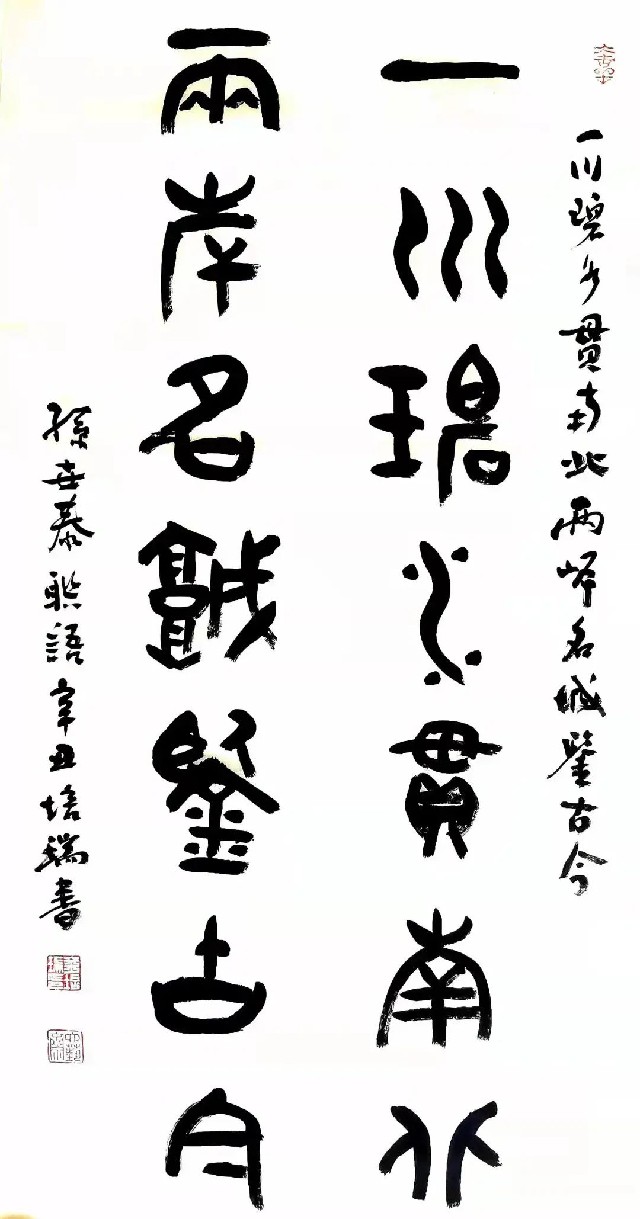 一川碧水貫南北兩岸名城鑒古今
一川碧水貫南北
兩岸名城鑒古今
孫世慕聯語辛丑培瑞書